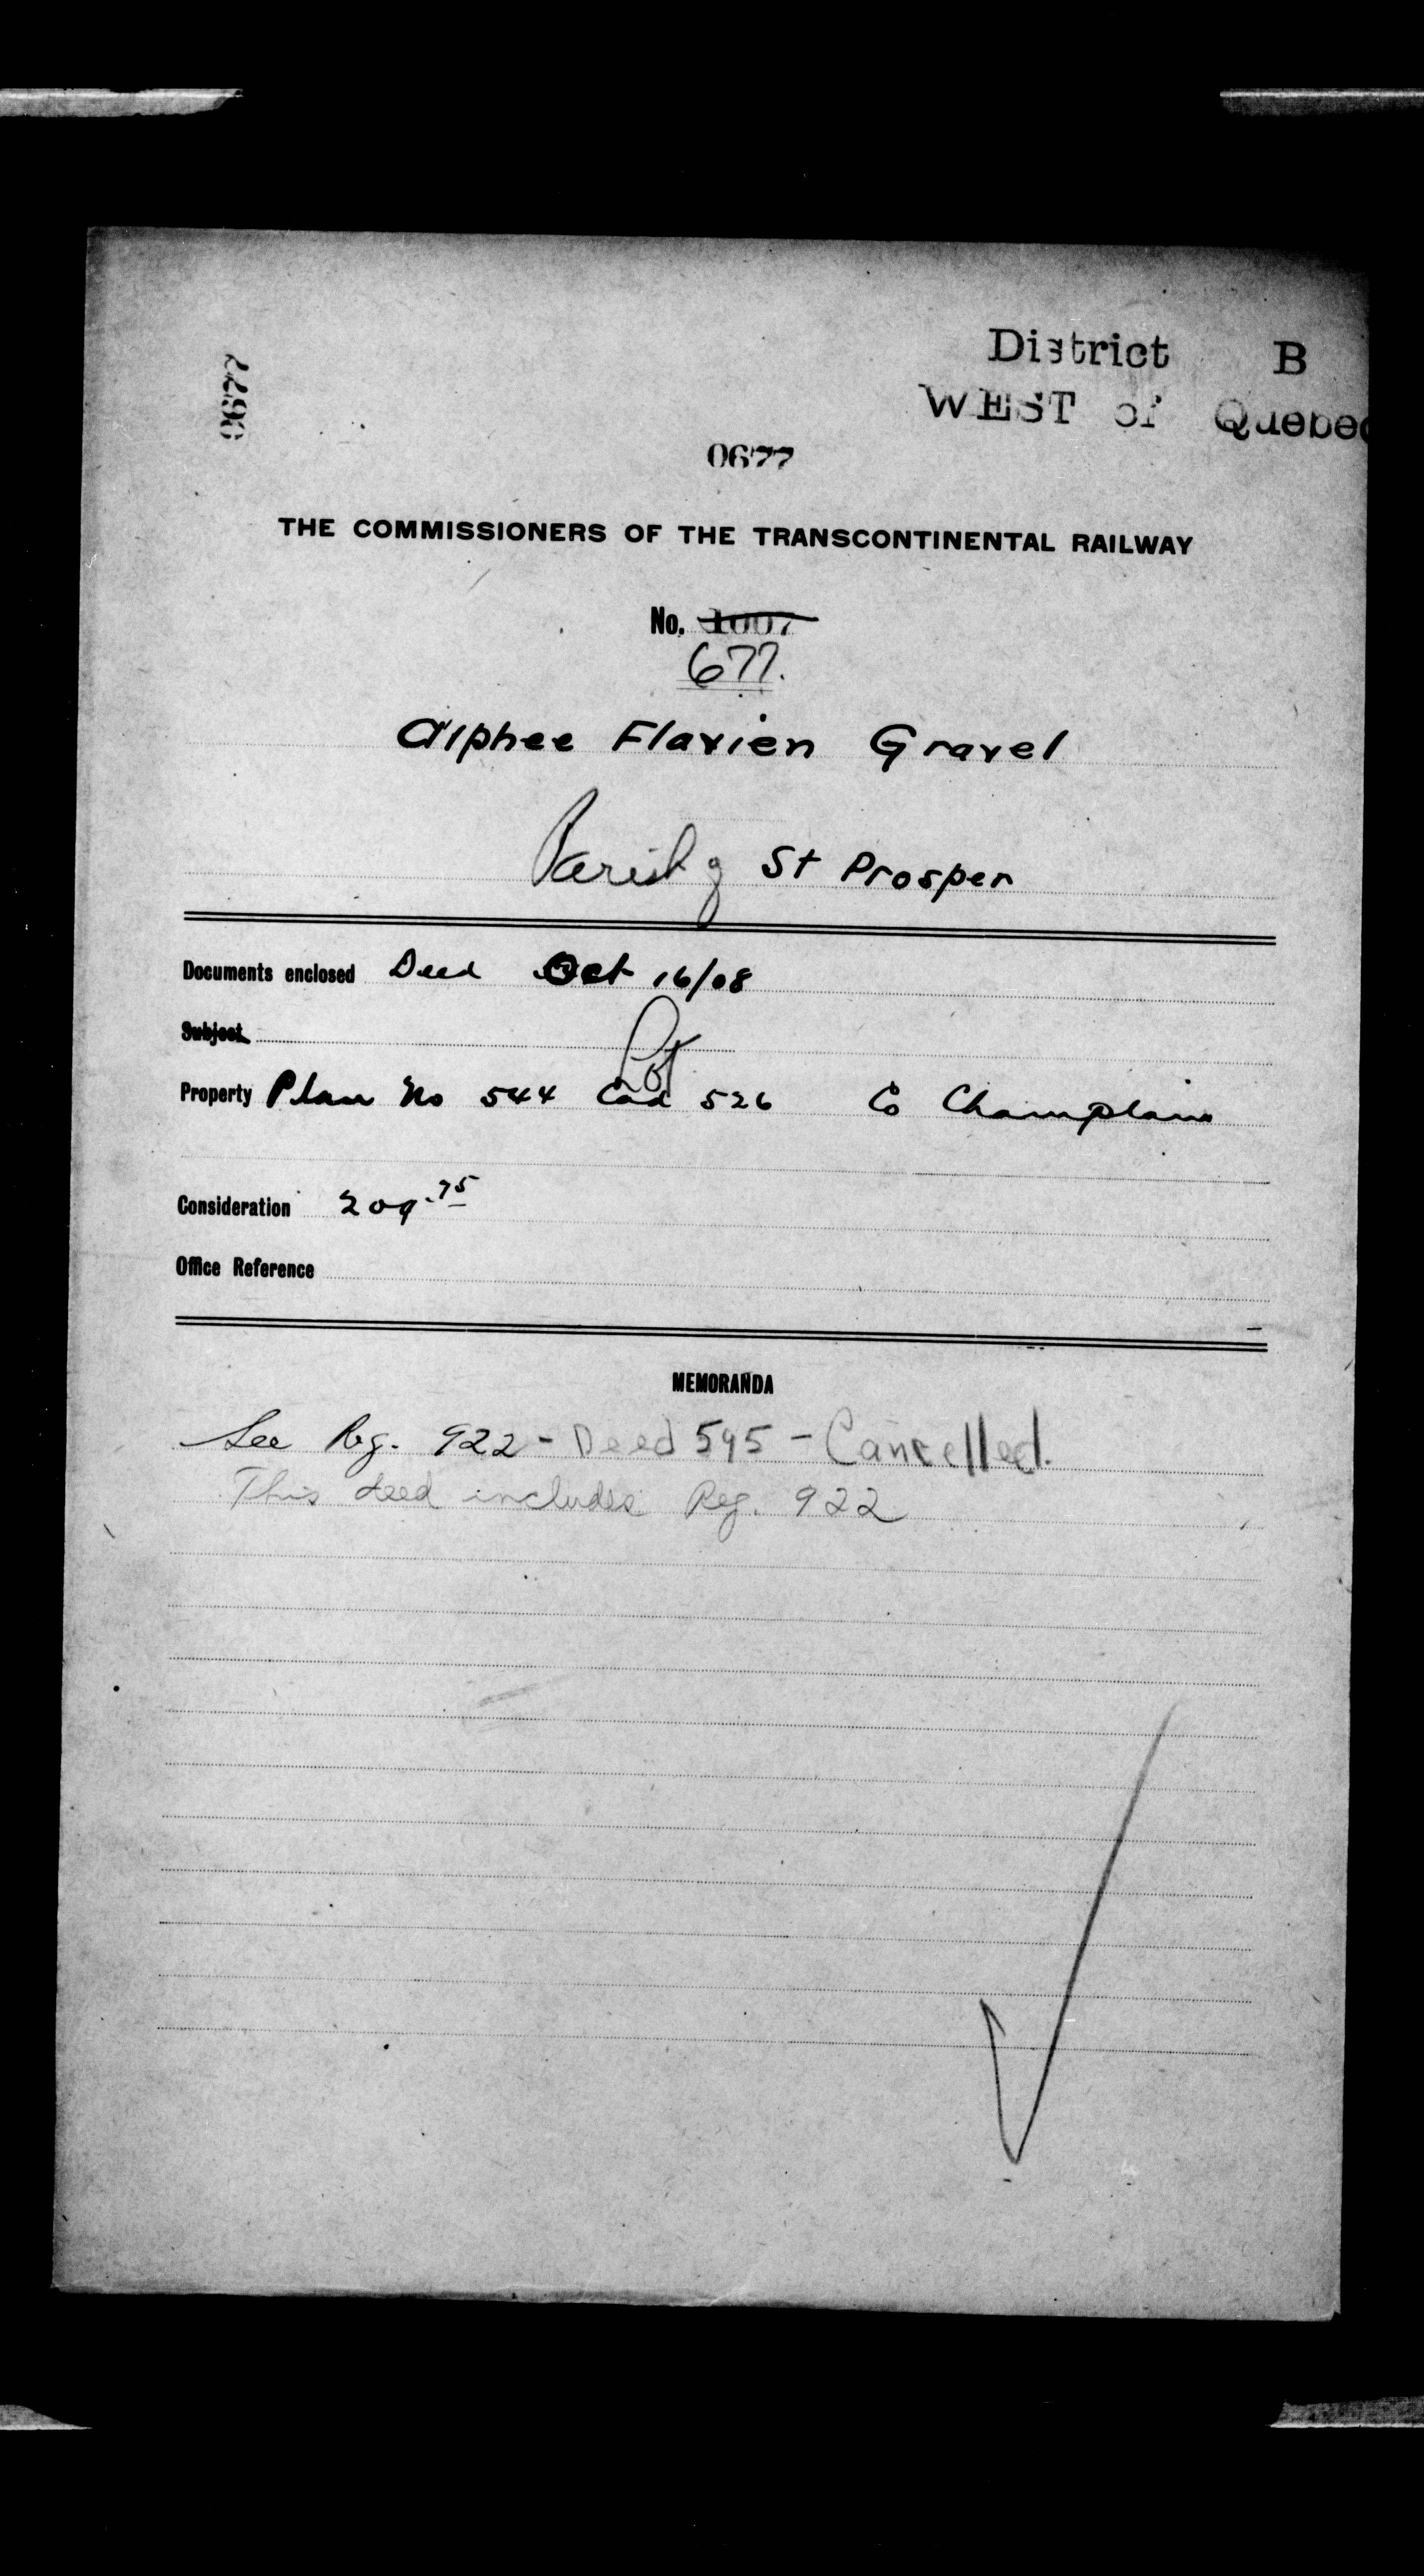 0677
District B
WEST of Quebec
0677
THE COMMISSIONERS OF THE TRANSCONTINENTAL RAILWAY
No. 1007
677.
Alphee Flavien Gravel
Parish of St Prosper
Documents enclosed Deed Oct 16/08
Subject
Lot
Property Plan No 544 Cad 526 Co Champlain
Consideration 209.75
Office Reference
MEMORANDA
See Reg. 922 - Deed 595 - Cancelled.
This deed includes Reg. 922